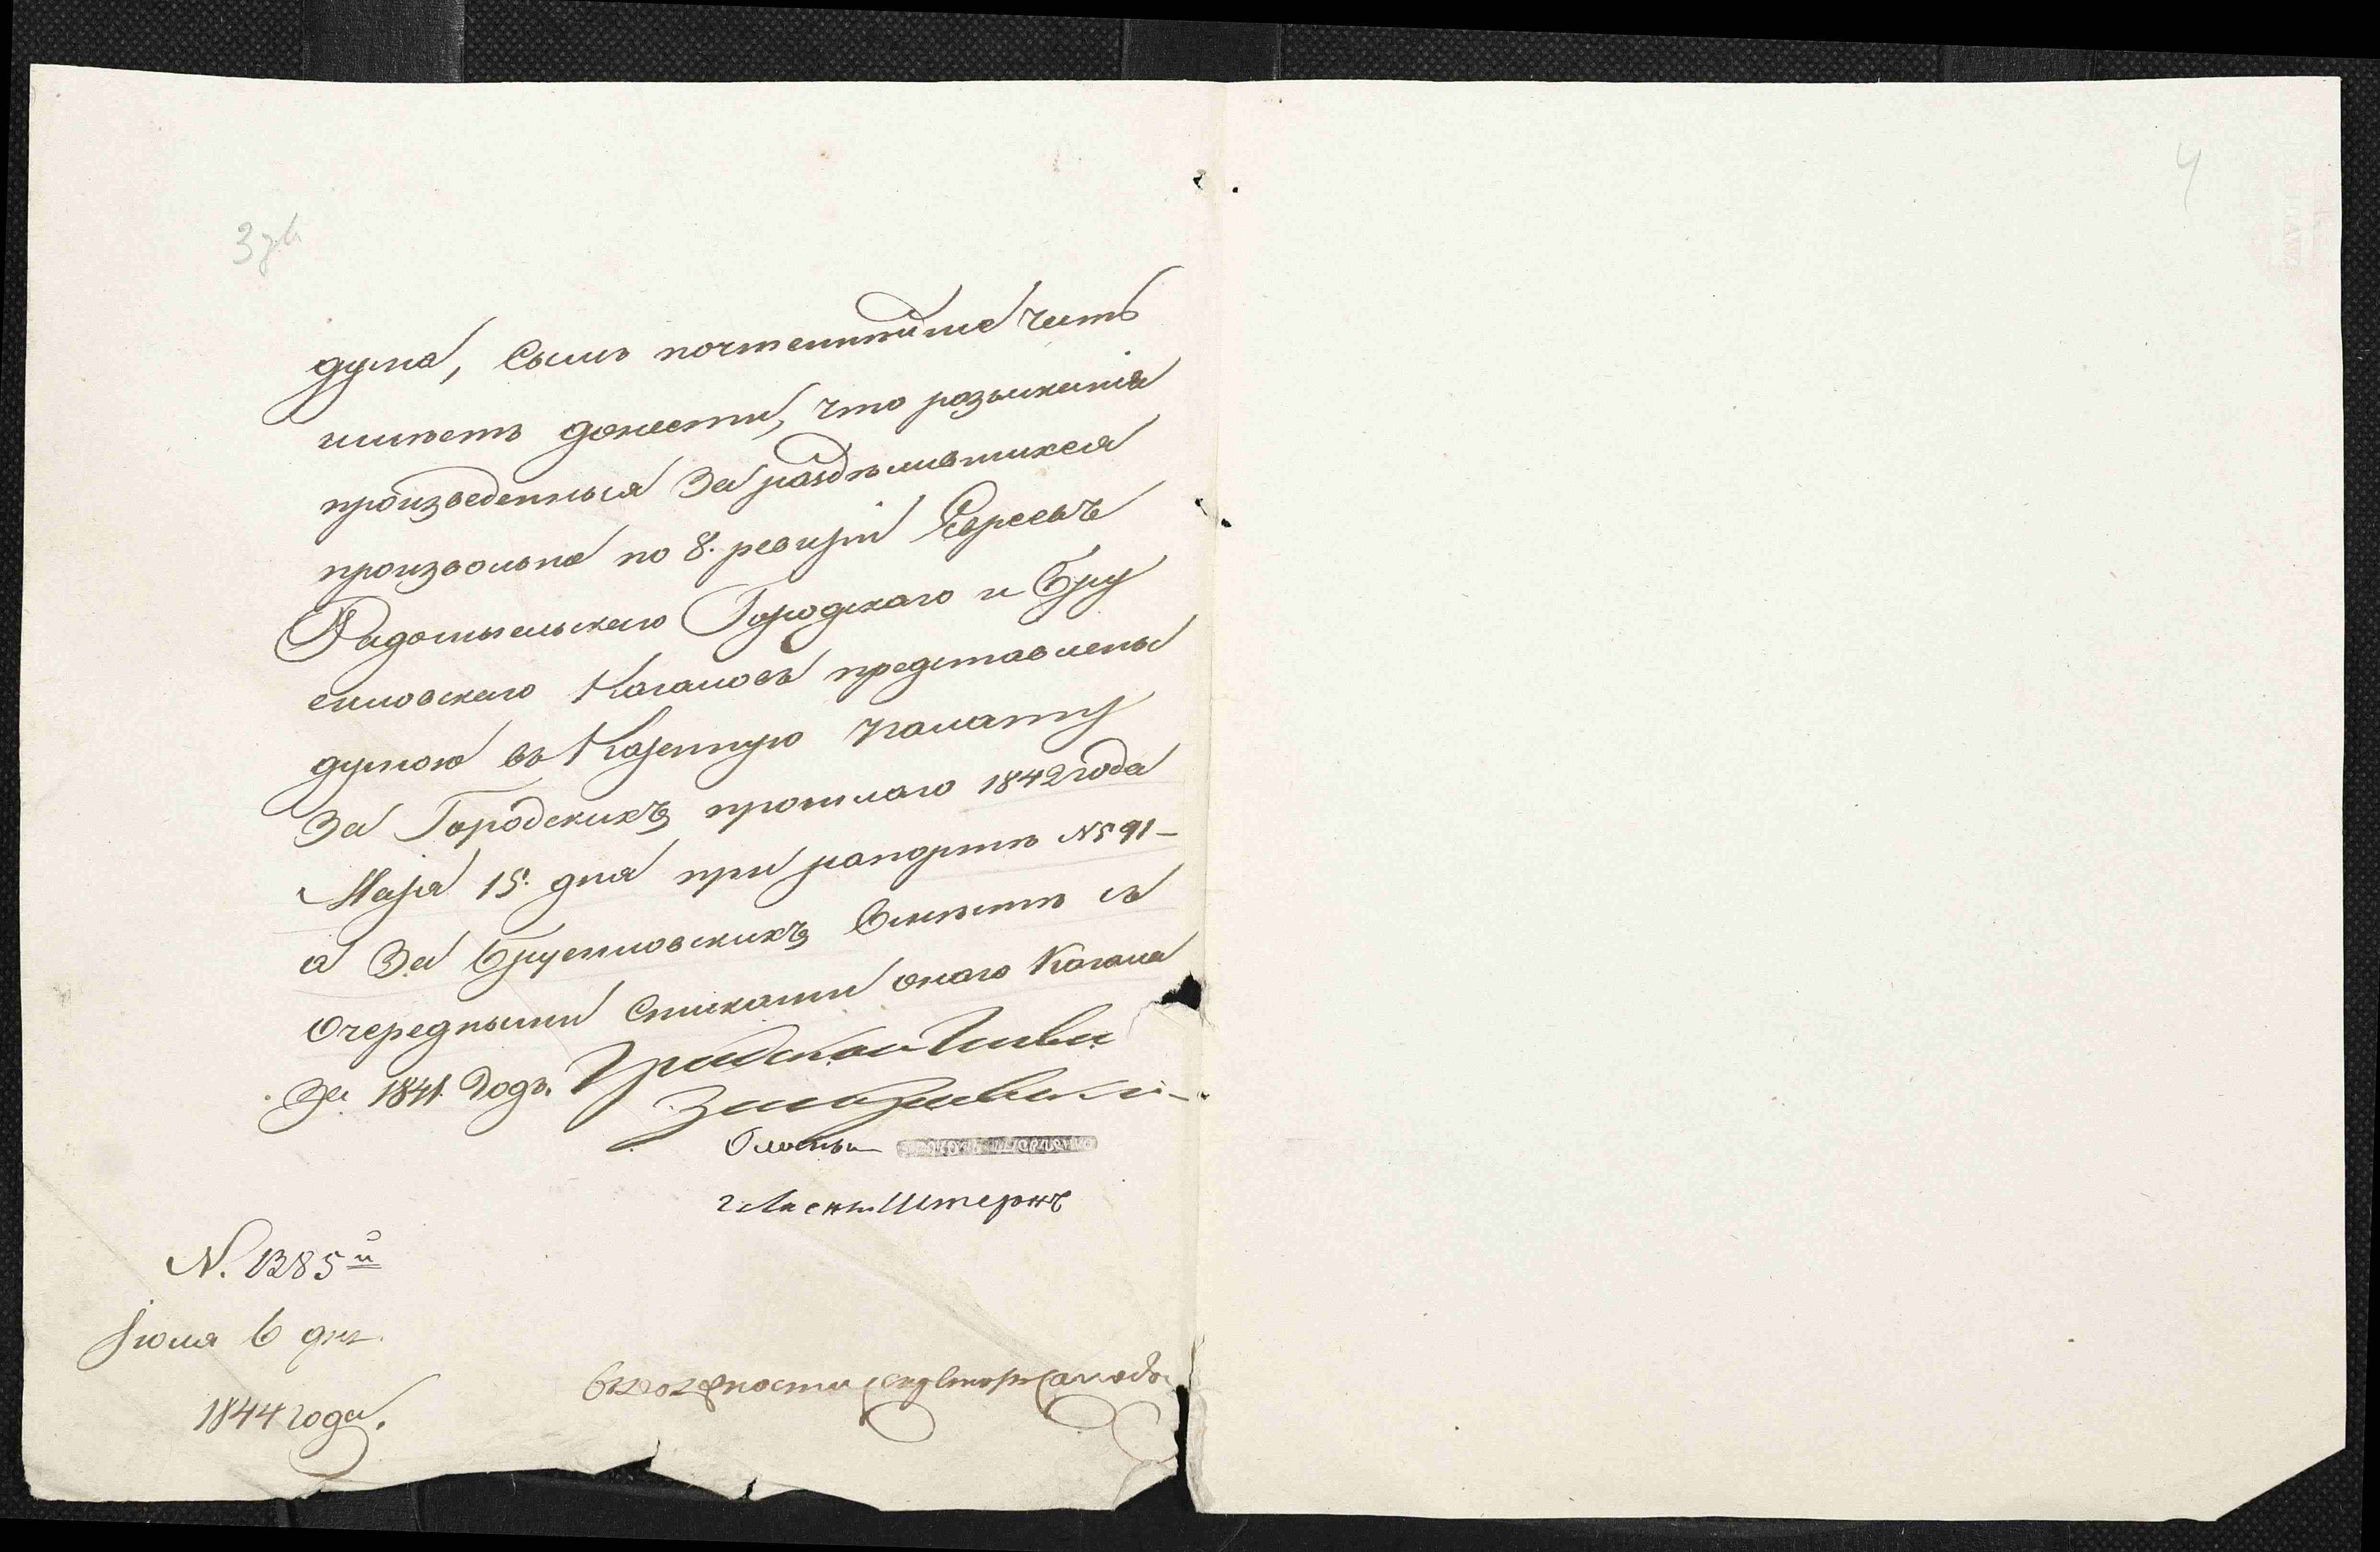 3 зв
4
дума, симъ почтеннѣйше честь
имѣетъ донести, что розысканія
произведенныя За раздѣлившихся
произвольно по 8. ревизіи Евреевъ
Радомысльскаго Городскаго и Бру
силовскаго Кагаловъ представлены
думою въ Казенную палату
За Городскихъ прошлаго 1842 года
Маія 15. дня при рапортѣ № 591 -
а За Брусиловскихъ вмѣстѣ съ
Очередными Списками онаго Кагала
За 1841. Годъ. Градской Глава
Гласный
Гласны Штернъ
N. 1385й
Іюля 6 дня
1844 года.
въ должности секретаря